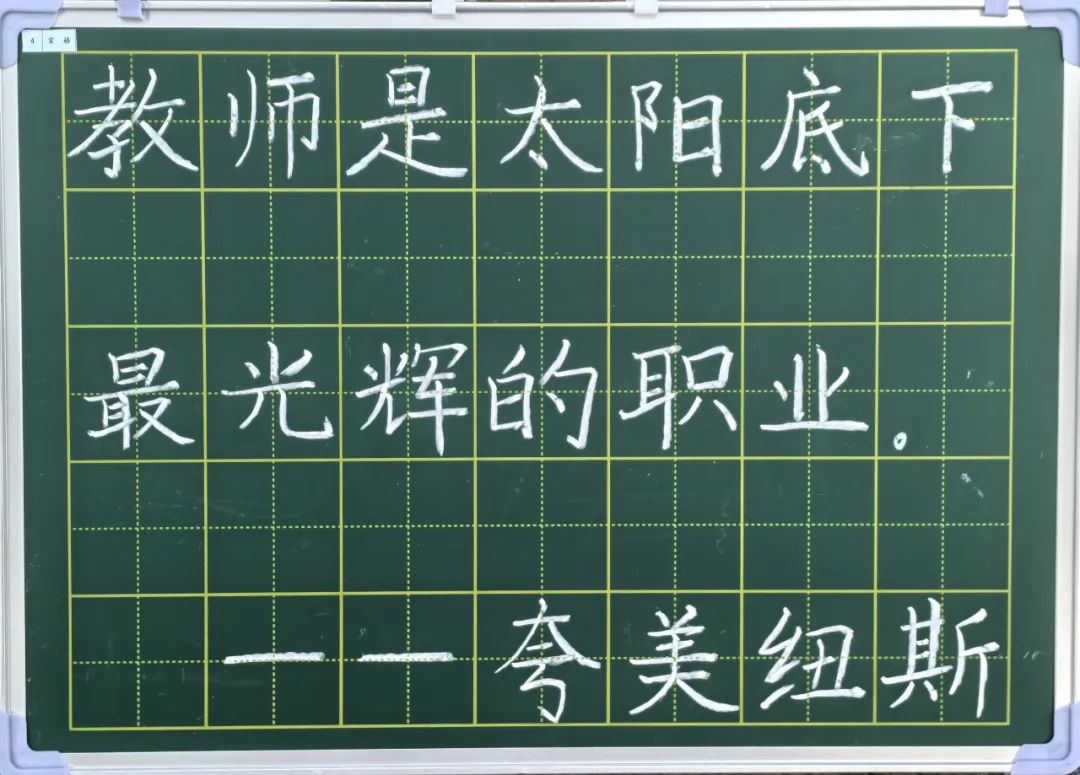 教师是太阳底下
最光辉的职业。
——夸美纽斯